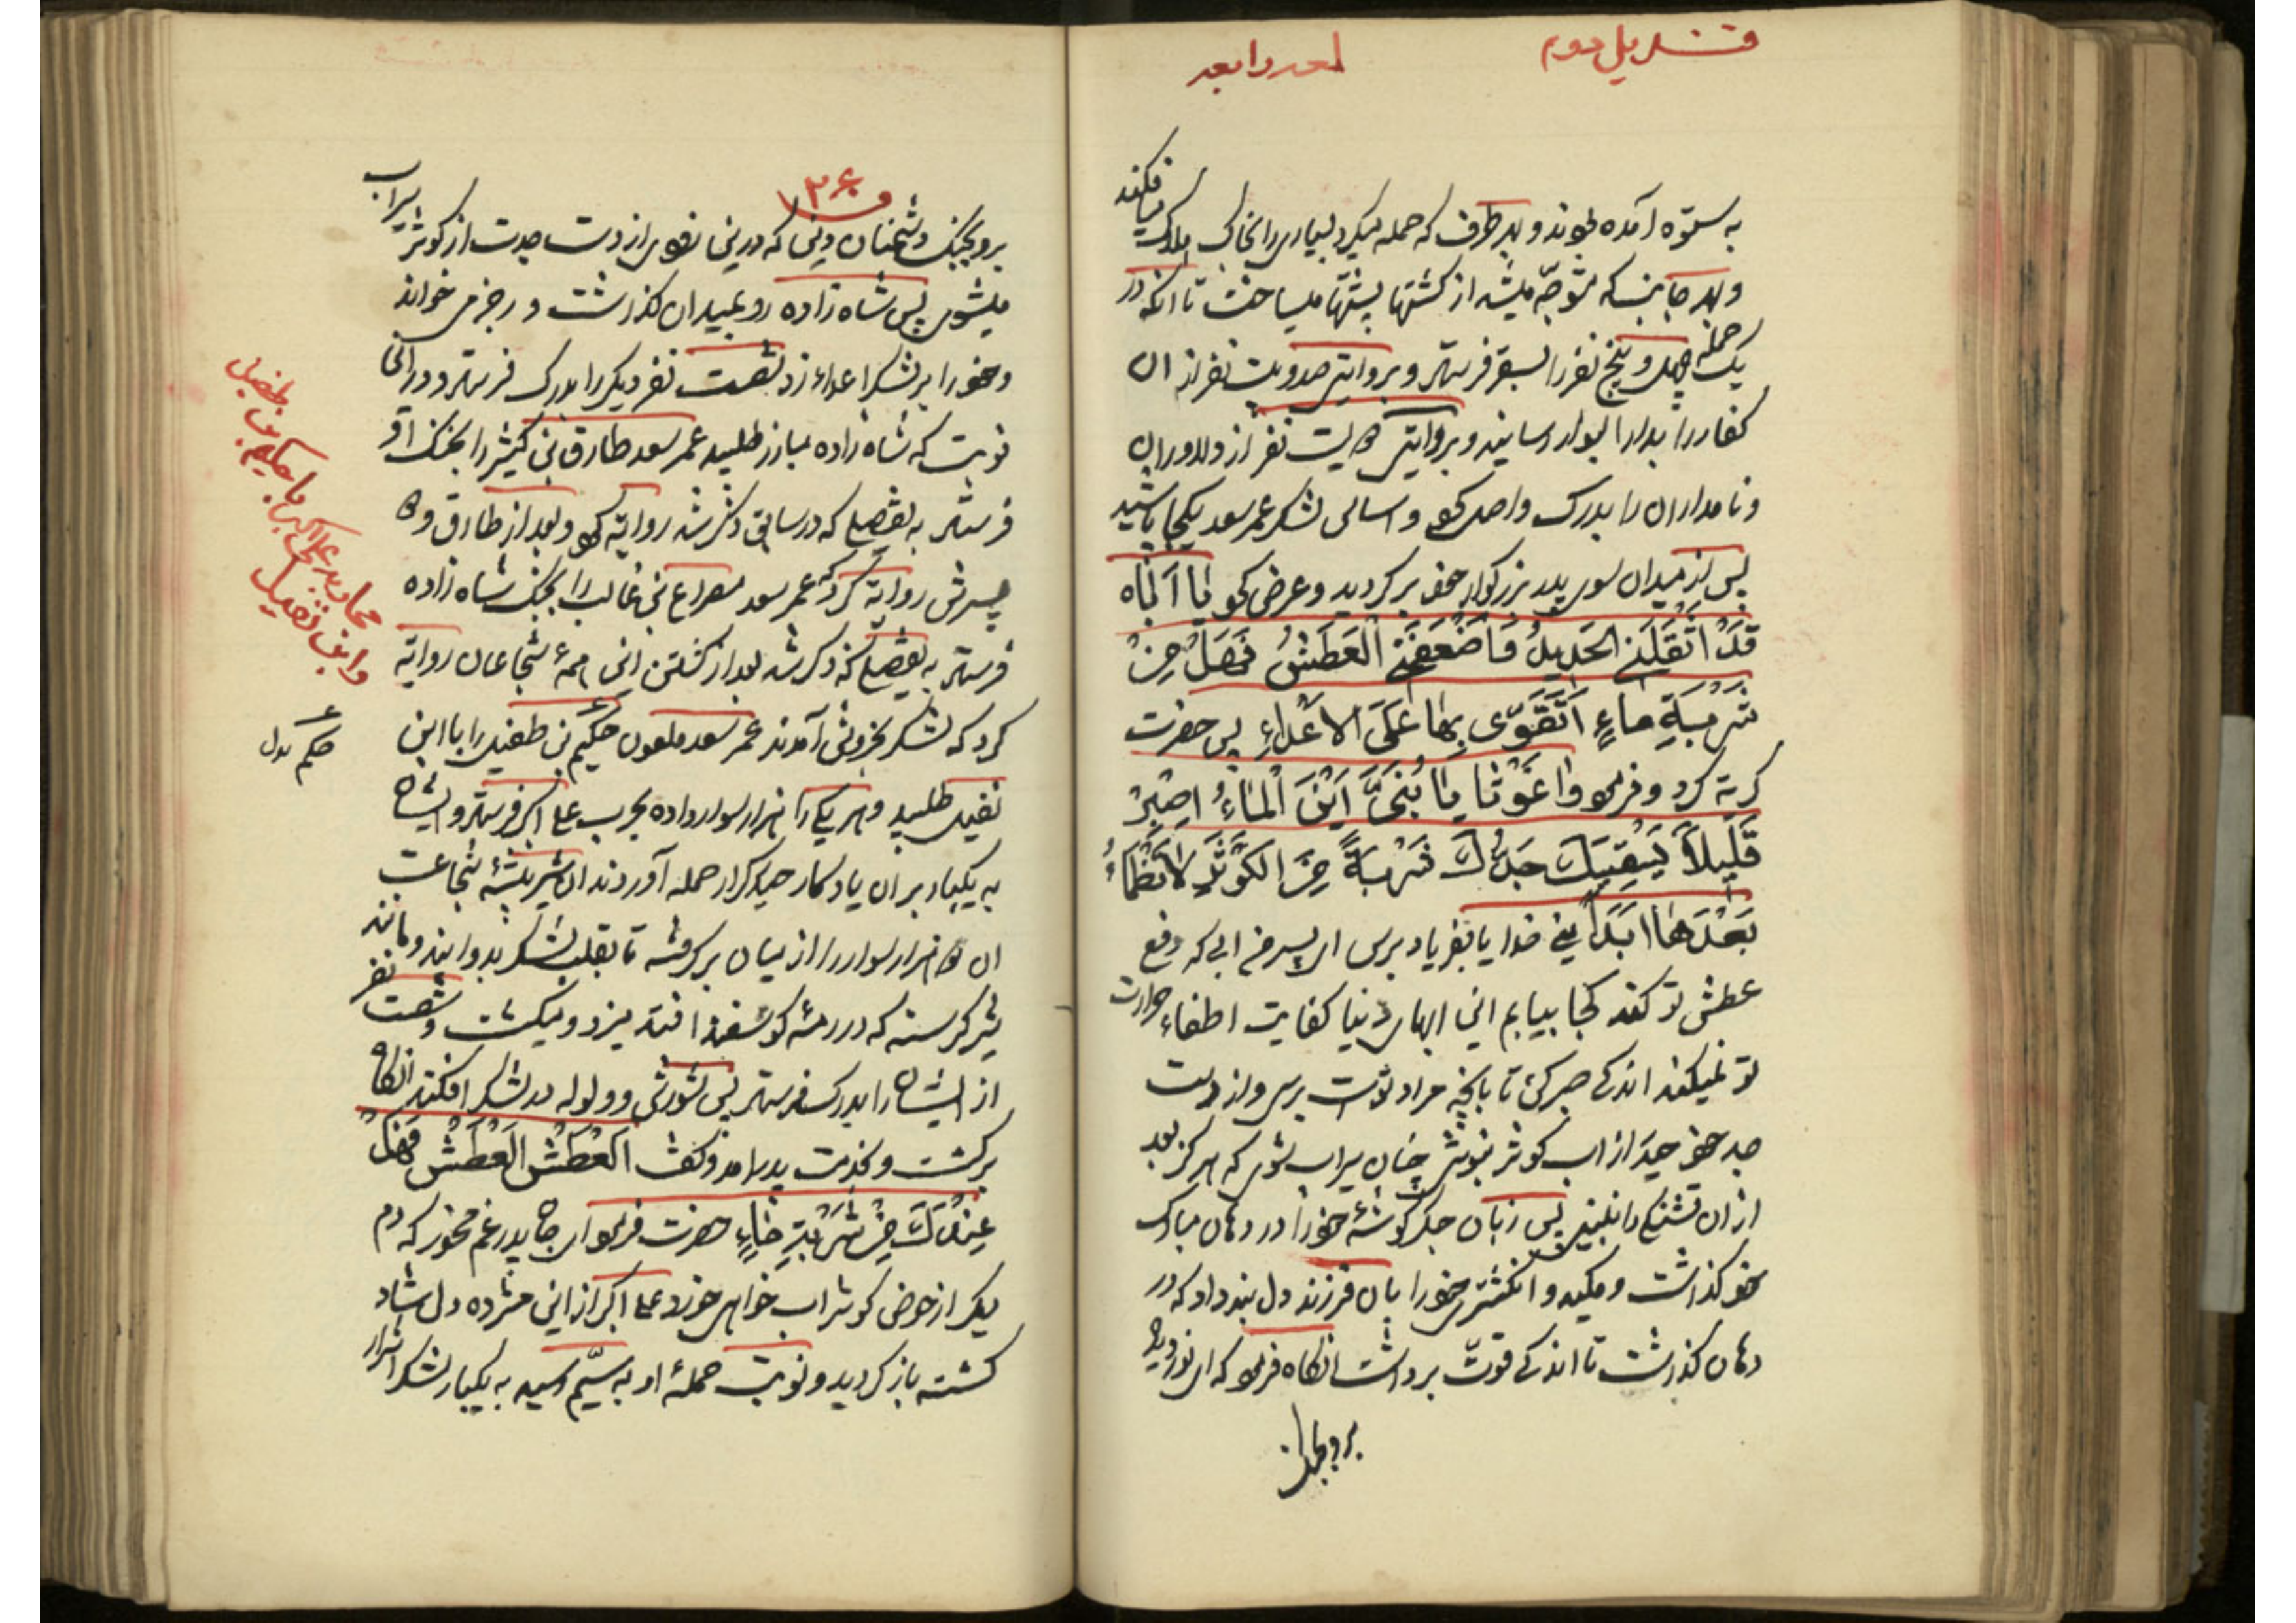 قندیل دوم
لمعه رابعه
به ستوه آمده بودند و بهر طرف که حمله میکرد بسیاری را بخاک هلاک میافکند
و بهر جانب که متوجّه میشد از کشتها پشتها میساخت تا آنکه در
یک حمله چهل و پنج نفر را بسقر فرستاد و بروایتی صد و بیست نفر از آن
کفار را بدار البوار رسانید و بروایتی دویست نفر از دلاوران
و نامداران را بدرک واصل کرد و اساس لشکر عمر سعد یکجا پاشید
پس از میدان بسوی پدر بزرگوار خود برگردید و عرض کرد یا اَبَتاه
قَدْ اَثْقَلَنِی الحَدِیدُ وَ اَضْعَفَنِی الْعَطَشُ فَهَلْ مِنْ
شَرْبَةِ ماءٍ اَتَقَوّی بِها عَلَی الاَعْداءِ پس حضرت
گریه کرد و فرمود واغَوْثا یا بُنَیَّ اَیْنَ الْماءُ اِصْبِرْ
قَلِیلاً یَسْقِیكَ جَدُّكَ شَرْبَةً مِنَ الکَوْثَرِ لاتَظْمَاُ
بَعْدَها اَبَداً یعنی خدایا بفریاد برس ای پسر من آبی که دفع
عطش تو کند کجا بیابم این آبهای دنیا کفایت اطفاء حرارت
تو نمیکند اندکی صبر کن تا بآنچه مراد توست برسی و از دست
جد خود حیدر از آب کوثر بنوشی چنان سیراب شوی که هرگز بعد
از آن تشنگی را نبینی پس زبان جگر گوشهٔ خود را در دهان مبارک
خود گذاشت و مکید و انگشتری خود را بآن فرزند دل بند داد که در
دهان گذاشت تا اندکی قوّت برداشت آنگاه فرمود که ای نور دیده
برو بجنگ
۱۲۶
برو بجنگ دشمنان دینی که در این نزدی از دست جدت از کوثر سیراب
میشوی پس شاه زاده رو بمیدان گذاشت و رجز می خواند
و خود را بر لشکر اعداء زد شصت نفر دیگر را بدرک فرستاد و در این
نوبت که شاه زاده مبارز طلبید عمر سعد طارق بن کثیر را بجنگ او
فرستاد به تفصیلی که در سابق ذکر شد روایة کرد و بعد از طارق و دو
پسرش روایة کرده که عمر سعد مصراع بن غالب را بجنگ شاه زاده
فرستاد به تفصیلی که ذکر شد بعد از کشتن این همهٔ شجاعان روایة
کرد که لشکر بخروش آمدند عمر سعد ملعون حکیم بن طفیل را با ابن
نفیل طلبید و هر یک را هزار سوار داده بحرب علی اکبر فرستاد و ایشان
به یکبار بر آن یادگار حیدر کرار حمله آوردند آن شیر بیشهٔ شجاعت
آن دو هزار سوار را از میان برگرفته تا بقلب لشکر بدوانید و مانند
شیر گرسنه که در رمهٔ گوسفند افتد میزد و میکشت و شصت نفر
از ایشان را بدرک فرستاد پس شورشی و ولوله در لشکر افکند آنگاه
برگشت و بخدمت پدر آمد و گفت اَلْعَطَشْ اَلْعَطَشْ فَهَلْ
عِنْدَكَ مِنْ شَرْبَةِ ماءٍ حضرت فرمود ای جان پدر غم مخور که دم
دیگر از حوض کوثر آب خواهی خورد علی اکبر از این مژده دل شاد
گشته باز گردید و نوبت حملهٔ او به سیّم رسید به یکبار لشکر اشرار
محاربه علی اکبر با حکیم بن طفیل
و ابن نفیل
حکم بدل